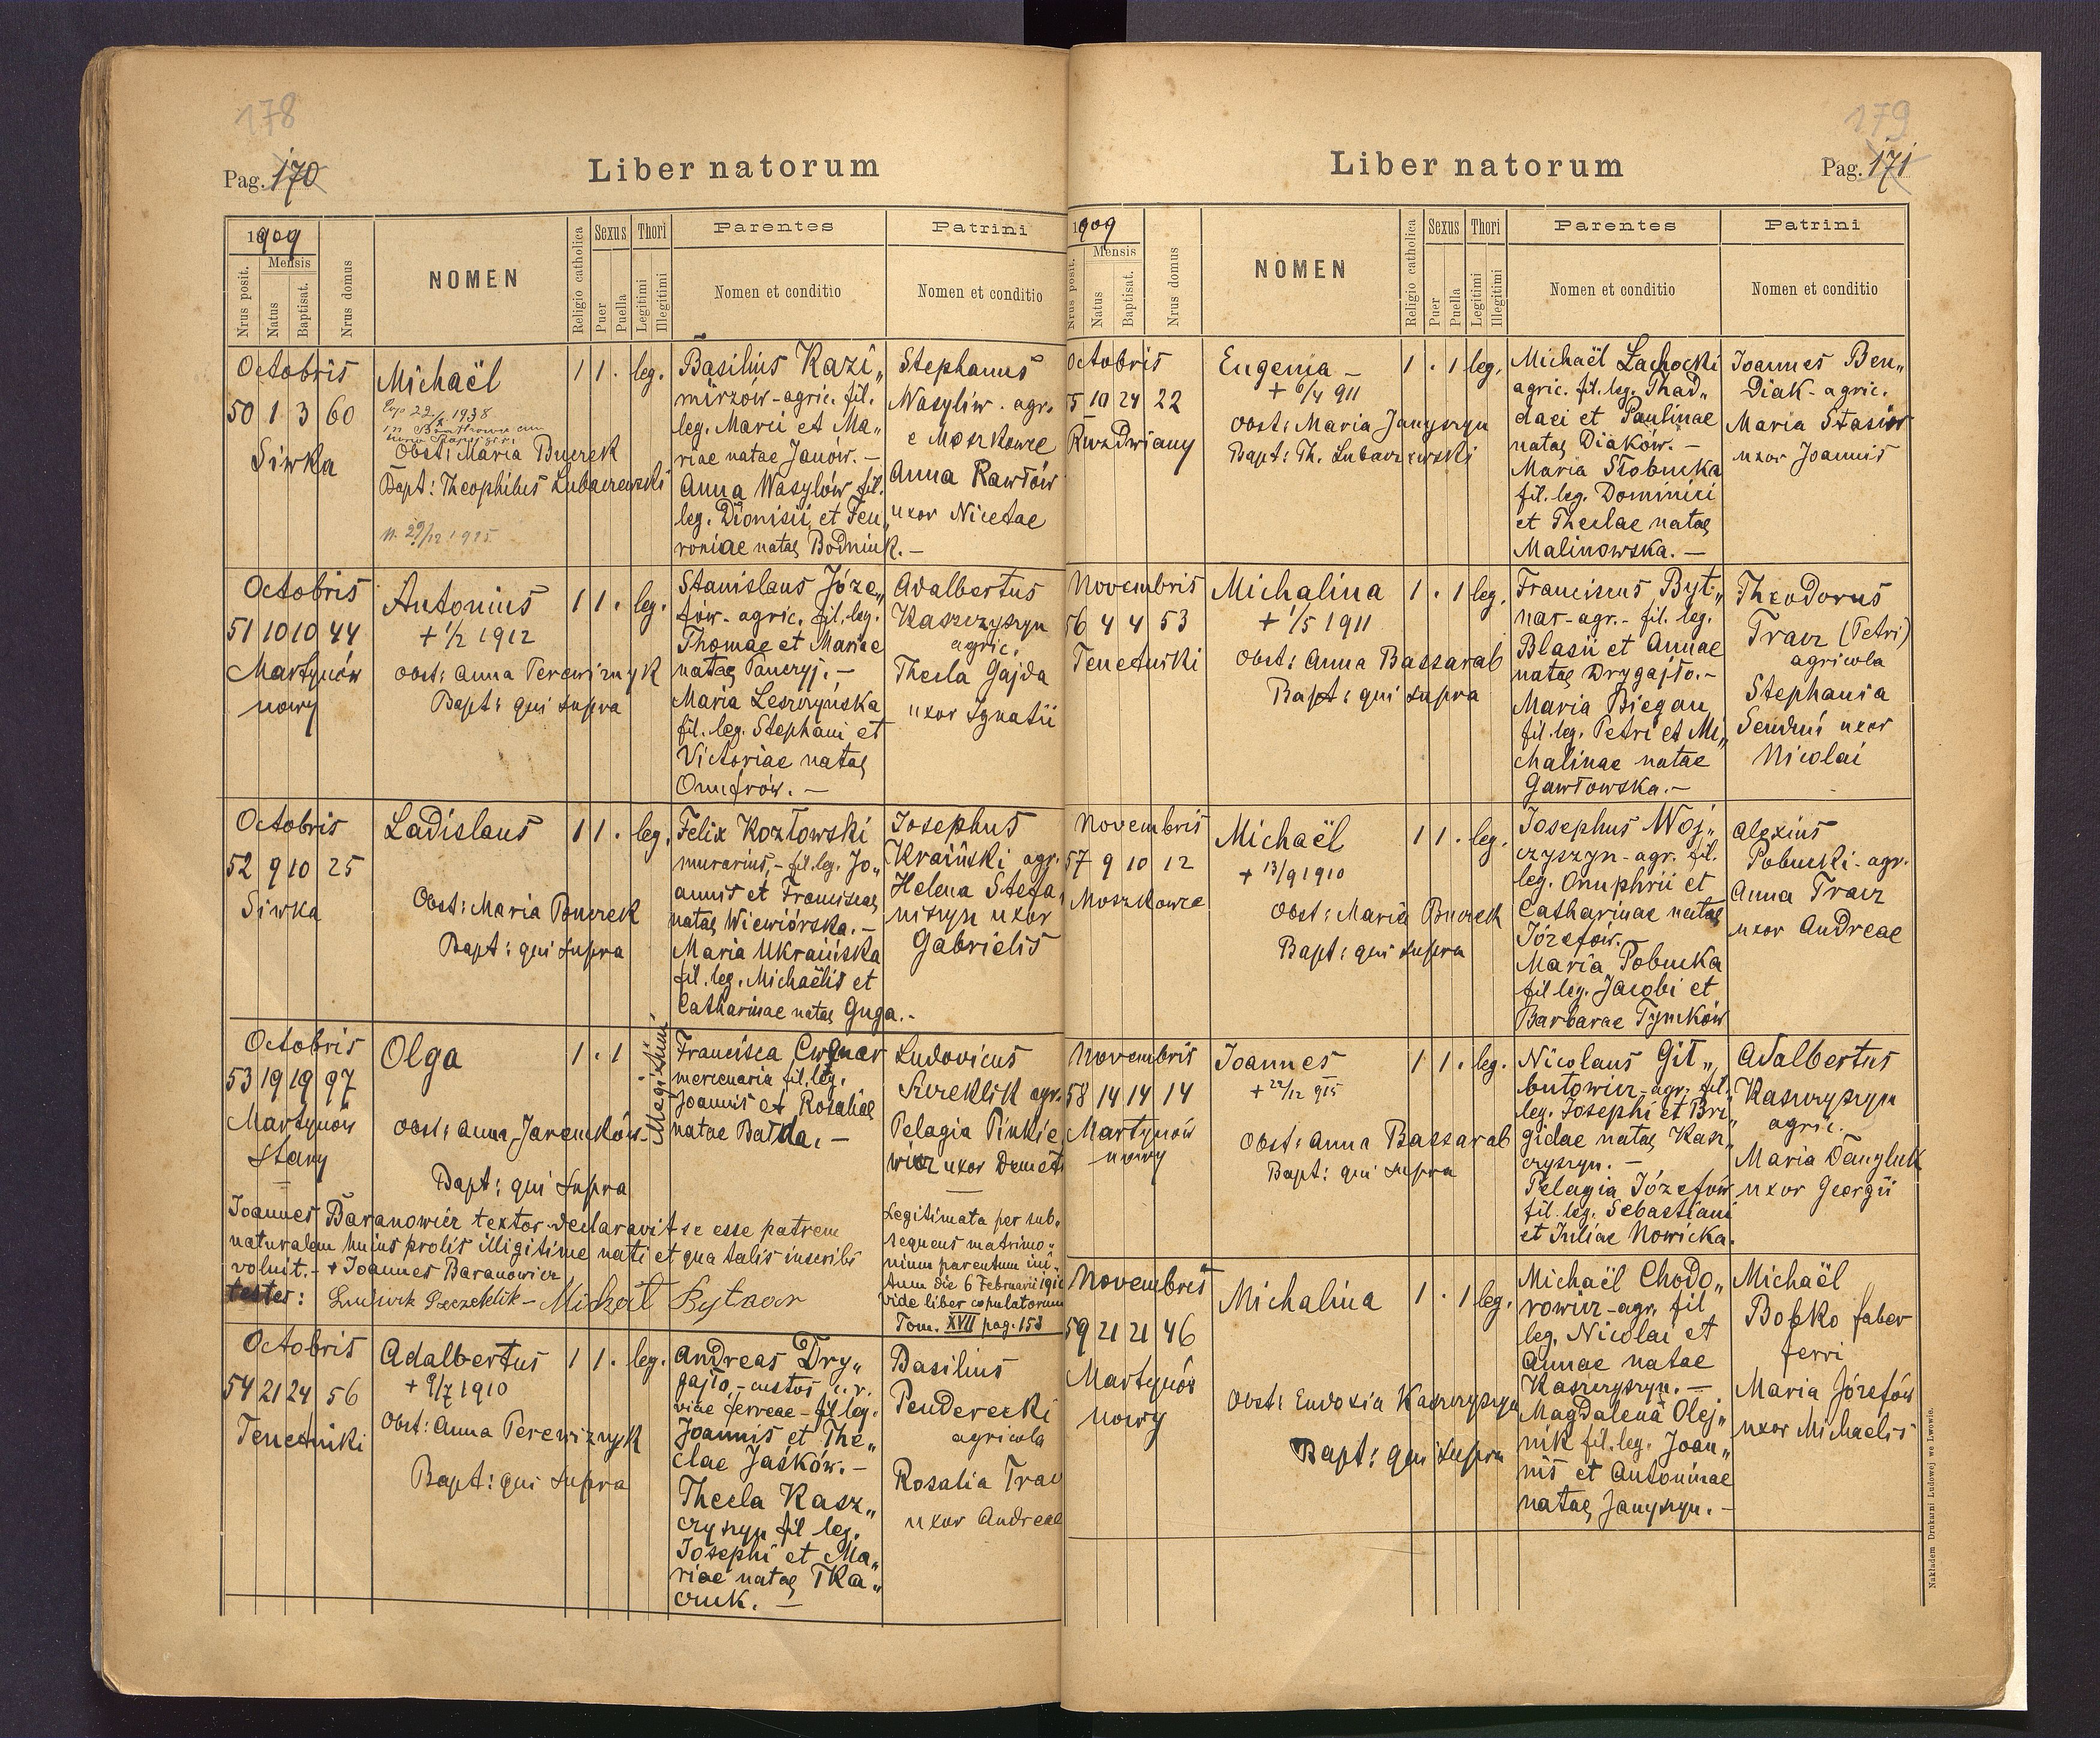 178
Pag. 170
Liber natorum
1909
Mensis
Nrus posit.
Natus
Baptisat.
Nrus domus
NOMEN
Religio catholica
Sexus
Puer
Puella
Thori
Legitimi
Illegitimi
Parentes
Nomen et conditio
Patrini
Nomen et conditio
Octobris
50 1 3 60
Siwka
Michaël
1938
Obst: Maria Buczek
Bapt: Theophilus Lubaczewski
1 1 . leg.
Basilius Kazi„
mirzów - agric. fil.
leg. Marci et Ma„
riae natae Janów. —
Anna Wasylów fil.
leg. Dionisii et Feu„
roniae natae Bodniuk. —
Stephanus
Wasyliw . agr.
e Moszkowce
Anna Rawłów
uxor Nicetae
Octobris
51 10 10 44
Martynów
nowy
Antonius
+ 1/2 1912
obst: Anna Perewiznyk
Bapt: qui supra
1 1 . leg.
Stanislaus Józe„
fów - agric. fil. leg.
Thomae et Mariae
natae Panczyj. —
Maria Leszczyńska
fil. leg. Stephani et
Victoriae natae
Onufrów. —
Adalbertus
Kaszczyszyn
agric.
Thecla Gajda
uxor Ignatii
Octobris
52 9 10 25
Siwka
Ladislaus
Obst: Maria Buczek
Bapt: qui supra
1 1 . leg.
Felix Kozłowski
murarius, - fil. leg. Jo„
annis et Franciscae
natae Wiewiórska. —
Maria Ukraińska
fil. leg. Michaëlis et
Catharinae natae Guga. -
Josephus
Kraiński agr.
Helena Stefa„
niszyn uxor
Gabrielis
Octobris
53 19 19 97
Martynów
stary
Olga
obst: Anna Jaremków
Bapt: qui supra
1 . 1
Francisca Cwynar
mercenaria fil. leg.
Joannis et Rosaliae
natae Bałda. —
Ludovicus
Szreklik agr.
Pelagia Pinkie
wicz uxor Demet
Joannes Baranowicz textor declaravit se esse patrem
naturalem huius prolis illigitime nati et qua talis inscribi
voluit. - + Joannes Baranowicz
testes: Ludwik Szczeklik - Michał Bytnar
Legitimata per sub„
sequens matrimo„
nium parentum ini„
tum die 6 Februarii 1910
vide liber copulatorum
Tom. XVII pag. 153
Octobris
54 21 24 56
Tenetniki
Adalbertus
+ 9/7 1910
Obst: Anna Perewiznyk
Bapt: qui supra
1 1 . leg.
Andreas Dry„
gajło, - custos c. r.
viae ferreae - fil. leg.
Joannis et The„
clae Jaśków. —
Thecla Kasz„
czyszyn fil. leg.
Josephi et Ma„
riae natae Tka„
czuk. —
Basilius
Penderecki
agricola
Rosalia Tracz
uxor Andreae
179
Pag. 171
Liber natorum
1909
Mensis
Nrus posit.
Natus
Baptisat.
Nrus domus
NOMEN
Religio catholica
Sexus
Puer
Puella
Thori
Legitimi
Illegitimi
Parentes
Nomen et conditio
Patrini
Nomen et conditio
Octobris
55 10 24 22
Ruzdwiany
Eugenia -
+ 6/4 911
obst: Maria Janyszyn
Bapt: Th. Lubaczewski
1 . 1 leg.
Michaël Lachocki
agric. fil. leg. Thad„
daei et Paulinae
natae Diaków. —
Maria Słobucka
fil. leg. Dominici
et Theclae natae
Malinowska. —
Joannes Ben„
Diak - agric.
Maria Stasiw
uxor Joannis
Novembris
56 4 4 53
Tenetniki
Michalina
+ 1/5 1911
obst: Anna Bassarab
Bapt: qui supra
1 . 1 leg.
Franciscus Byt„
nar - agr. - fil. leg.
Blasii et Annae
natae Drygajło. -
Maria Biegan
fil. leg. Petri et Mi„
chalinae natae
Gawłowska. —
Theodorus
Tracz (Petri)
agricola
Stephania
uxor
Nicolai
Novembris
57 9 10 12
Moszkowce
Michaël
+ 13/9 1910
obst: Maria Buczek
Bapt: qui supra
1 1 . leg.
Josephus Woj„
czyszyn - agr. fil.
leg. Onuphrii et
Catharinae natae
Józefów.
Maria Pobucka
fil. leg. Jacobi et
Barbarae Tymków
Alexius
Pobucki - agr.
Anna Tracz
uxor Andreae
Novembris
58 14 14 14
Martynów
nowy
Joannes
+ 22/12 915
obst: Anna Bassarab
Bapt: qui supra
1 1 . leg.
Nicolaus Git„
butowicz - agr. fil.
leg. Josephi et Bri„
gidae natae Kasz„
czyszyn. —
Pelagia Józefów
fil. leg. Sebastiani
et Juliae Nowicka.
Adalbertus
Kaszczyszyn
agric.
Maria Danyluk
uxor Georgii
Novembris
59 21 21 46
Martynów
nowy
Michalina
Obst: Eudoxia Kaszczyszyn
Bapt: qui supra
1 . 1 leg.
Michaël Chodo„
rowicz - agr. fil.
leg. Nicolai et
Annae natae
Kaszczyszyn. —
Magdalena Olej„
nik fil. leg. Joan„
nis et Antoninae
natae Janyszyn. —
Michaël
Bobko faber
ferri
Maria Józefów
uxor Michaelis
Nakładem Drukarni Ludowej we Lwowie.